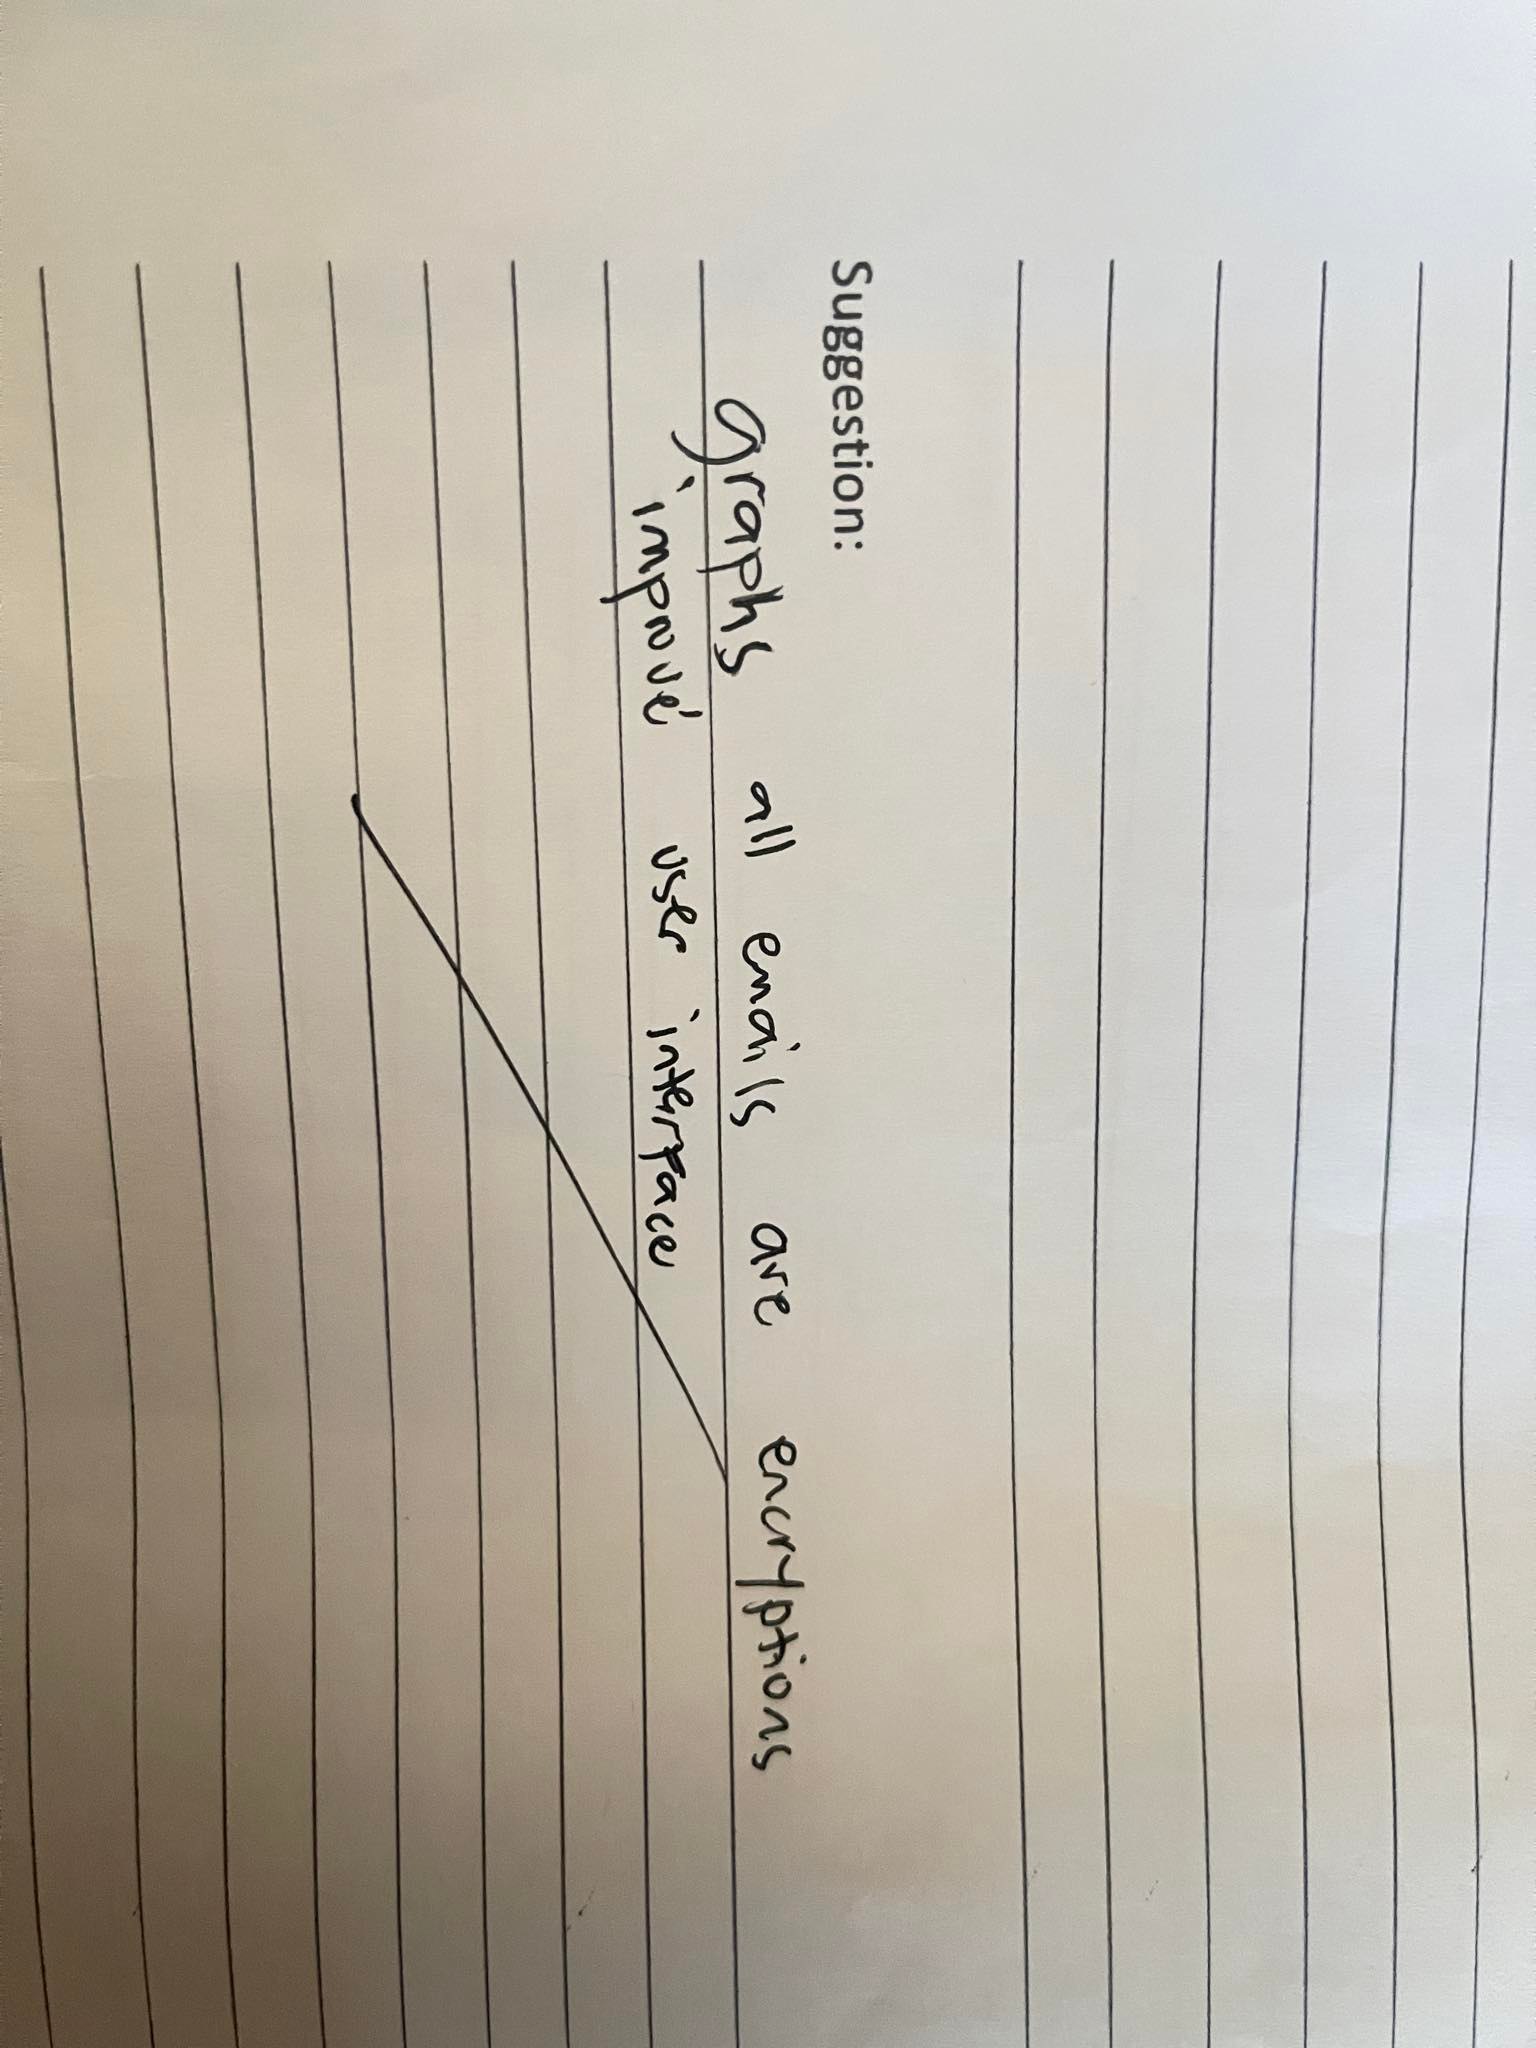 Suggestion:
graphs all emails are encryptions
improve user interface